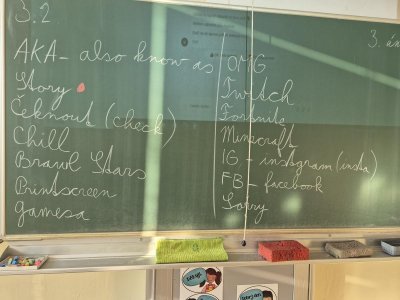 3.2
AKA - also know as
Story
Čeknout (check)
Chill
Brawl Stars
Printscreen
gamesa
OMG
Twitch
Fortnite
Minecraft
IG - instagram (insta)
FB - facebook
Sorry
3. ún